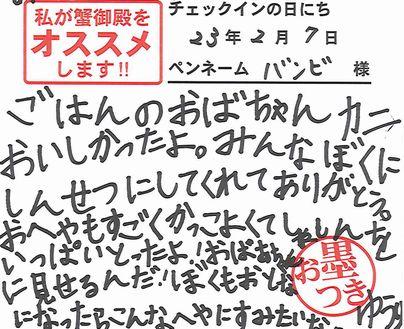 私が蟹御殿を
オススメ
します!!
チェックインの日にち
23年2月7日
ペンネーム バンビ 様
ごはんのおばちゃん カニ
おいしかったよ。みんなぼくに
しんせつにしてくれてありがとう。
おへやもすごくかっこよくてしゃしんを
いっぱいとったよ!おばあ
に見せるんだ!ぼくもお
になったらこんなへやにすみたいな
お墨つき